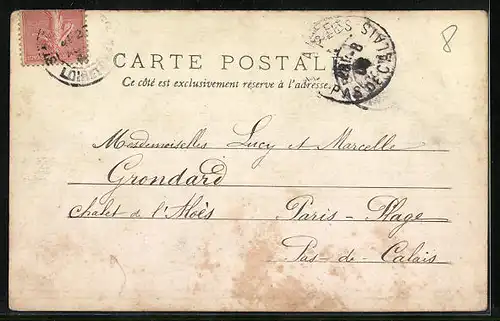 CARTE POSTALE
Ce côté est exclusivement réservé à l'adresse.
8
Mesdemoiselles Lucy et Marcelle
Grondard
Chalet de l'Moës Paris-Plage
Pas-de-Calais
PAS DE CALAIS
LOIRET